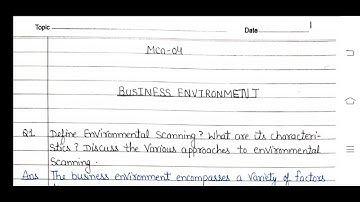 Topic
Date
1
MCO-04
BUSINESS ENVIRONMENT
Q1. Define Environmental Scanning? What are its characteri-
stics? Discuss the Various approaches to environmental
Scanning.
Ans The business environment encompasses a variety of factors